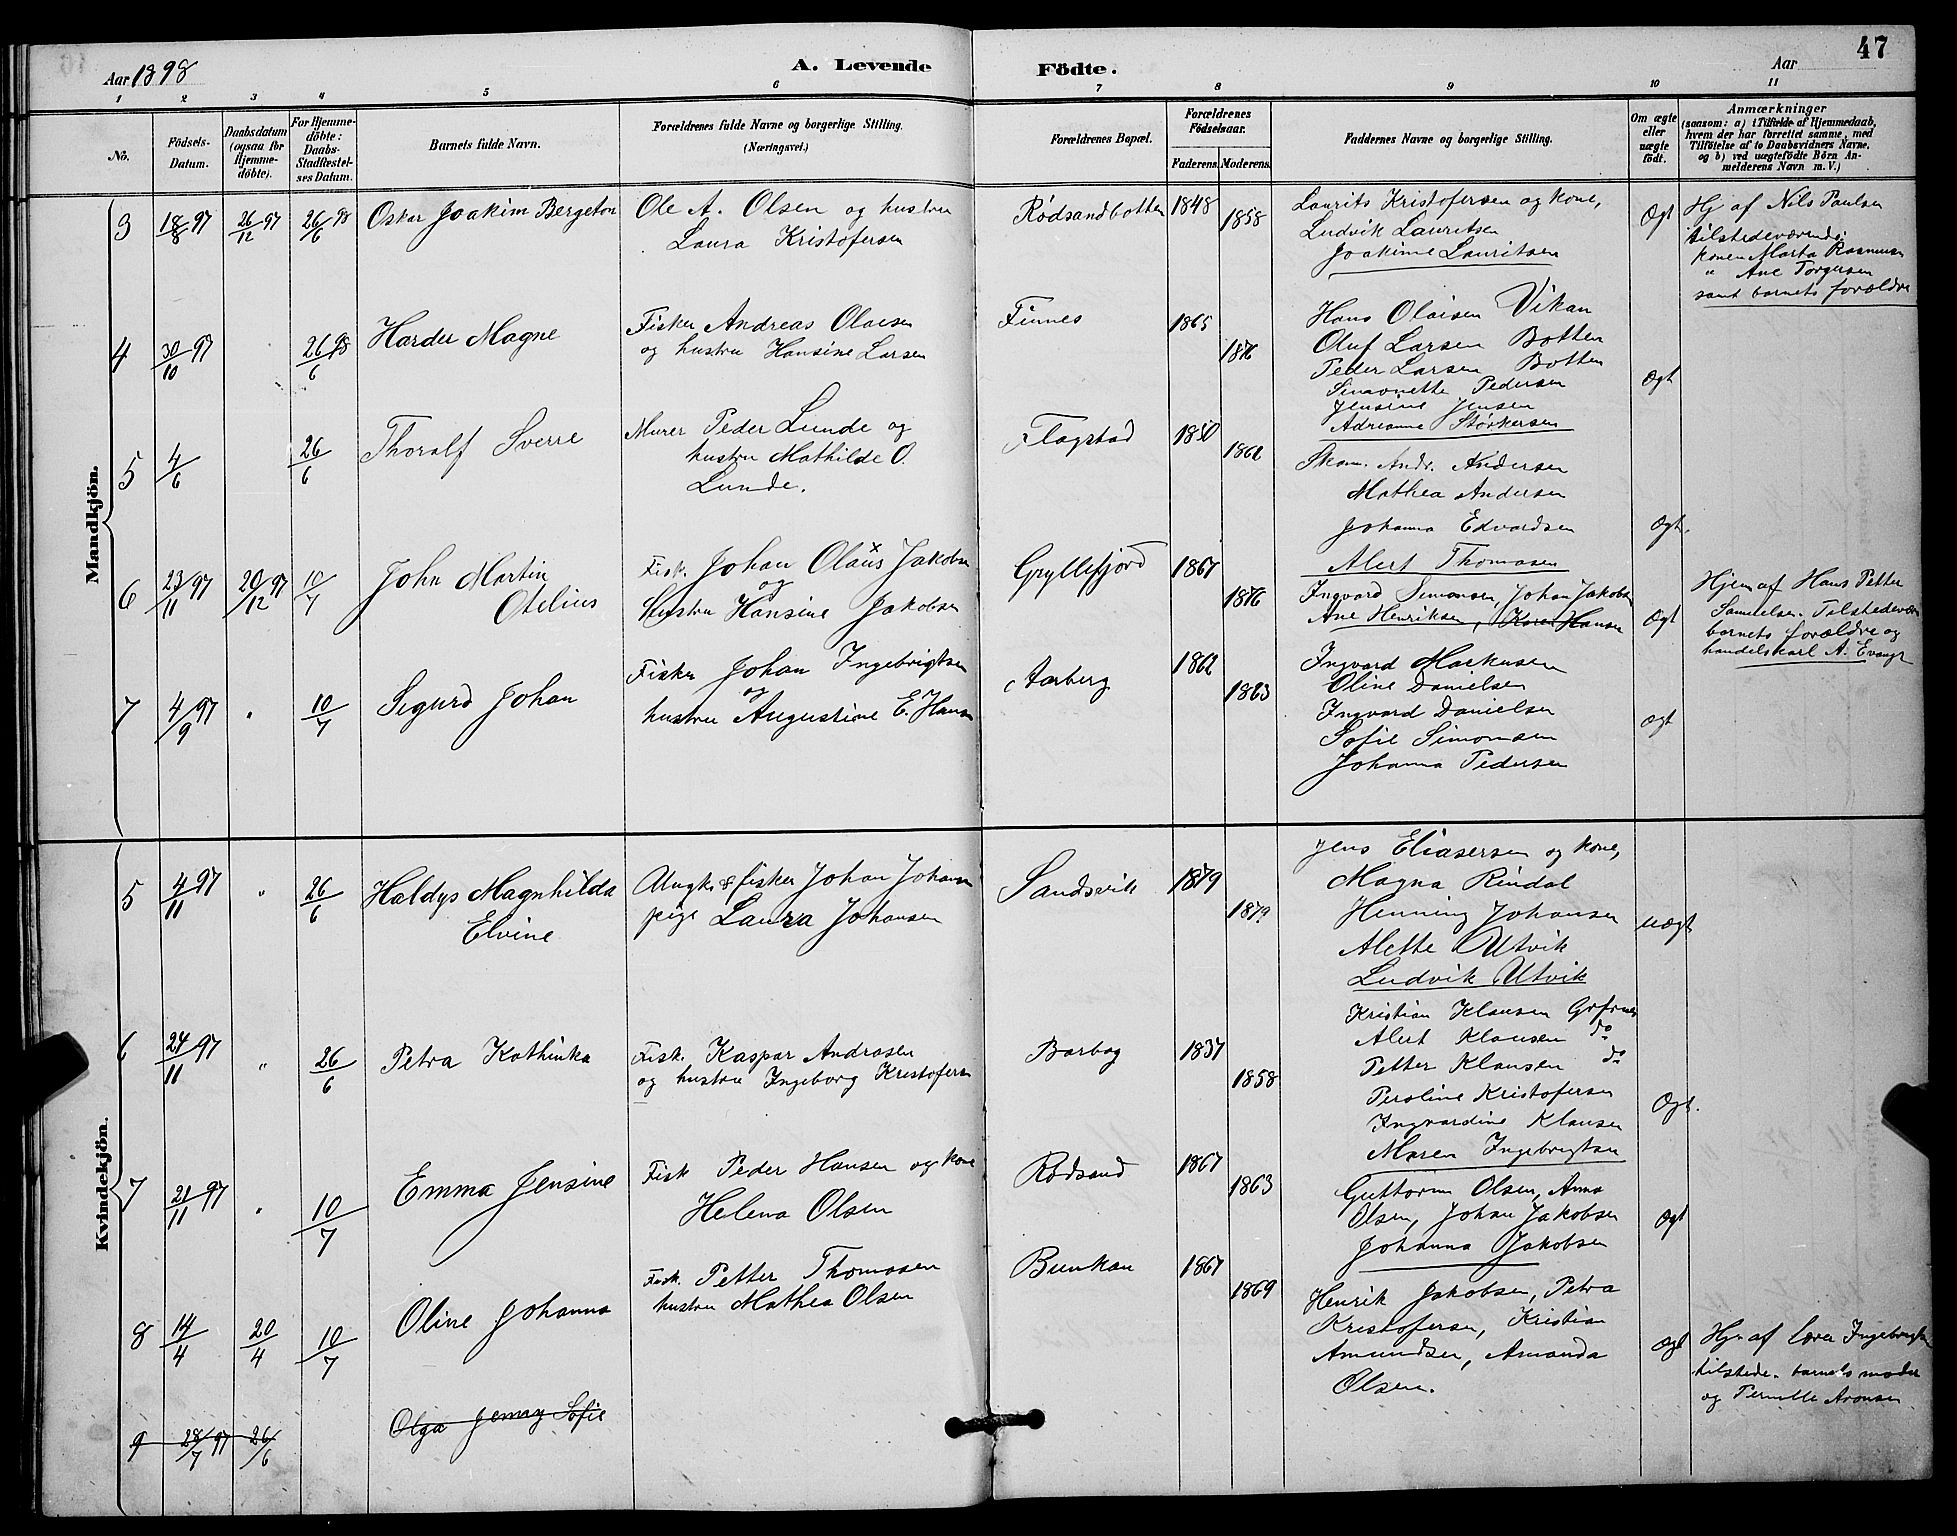 Aar 1898
A. Levende Födte.
Aar
47
1 2 3 4 5 6 7 8 9 10 11
No.
Födsels-Datum.
Daabsdatum (ogsaa for Hjemmedöbte).
For Hjemmedöbte: Daabs-Stadfestelses Datum.
Barnets fulde Navn.
Forældrenes fulde Navne og borgerlige Stilling. (Næringsvei.)
Forældrenes Bopæl.
Forældrenes Födselsaar.
Faderens. Moderens.
Faddernes Navne og borgerlige Stilling.
Om ægte eller uægte födt.
Anmærkninger
(saasom: a) i Tilfælde af Hjemmedaab, hvem der har forrettet samme, med Tilföielse af to Daabsvidners Navne, og b) ved uægtefödte Börn Anmelderens Navn m. V.)
Mandkjön.
3 18/8 97 26/12 97 26/6 98 Oskar Joakim Bergeton
Ole A. Olsen og hustru
Laura Kristofersen
Rödsandbotten 1848 1858
Laurits Kristofersen og kone,
Ludvik Lauritsen
Joakime Lauritsen
Ægt
Hj af Nils Paulsen
tilstedeværende:
konen Marta Rasmusen
" Ane Torgersen
samt barnets forældre
4 30/10 97 26/6 98 Harder Magne
Fisker Andreas Olaisen
og hustru Hansine Larsen
Finnes 1865 1876
Hans Olaisen Vikan
Oluf Larsen Botten
Peder Larsen Botten
Simonette Pedersen
Jensine Jensen
Adrianne Störkersen
Ægt
5 4/6 26/6 Thoralf Sverre
Murer Peder Lunde og
hustru Mathilde O.
Lunde.
Flagstad 1850 1862
Skom. Andr. Andersen
Mathea Andersen
Johanna Edvardsen
Alert Thomasen
Ægt.
6 23/11 97 20/12 97 10/7 John Martin
Otelius
Fisk. Johan Olaus Jakobsen
og
Hustru Hansine Jakobsen
Gryllefjord 1867 1876
Ingvard Simonsen, Johan Jakobsen
Ane Henriksen, Karen Hansen
Ægt
Hjem af Hans Petter
Samuelsen. Tilstedevær
barnets forældre og
handelskarl A. Evanger
7 4/9 97 " 10/7 Sigurd Johan
Fisker Johan Ingebrigtsen
og
hustru Augustine E. Hansen
Aarberg 1862 1863
Ingvard Markusen
Oline Danielsen
Ingvard Danielsen
Sofie Simonsen
Johanna Pedersen
Ægt
Kvindekjön.
5 4/11 97 " 26/6 Haldys Magnhilda
Elvine
Ungk. & fisker Johan Johansen
pige Laura Johansen
Sandsvik 1879 1879
Jens Eliasersen og kone,
Magna Rindal
Henning Johansen
Alette Utvik
Ludvik Utvik
uægt
6 24/11 97 " 26/6 Petra Kathinka
Fisk. Kaspar Andrasen
og hustru Ingeborg Kristofersen
Barbog 1837 1858
Kristian Klausen
Alert Klausen do
Petter Klausen do
Peroline Kristofersen
Ingvardine Klausen
Maren Ingebrigtsen
Ægt.
7 21/11 97 " 10/7 Emma Jensine
Fisk Peder Hansen og kone
Helena Olsen
Rödsand 1867 1863
Guttorm Olsen, Anna
Olsen, Johan Jakobsen
Johanna Jakobsen
Ægt
8 14/4 20/4 10/7 Oline Johanna
Fisk. Petter Thomasen
hustru Mathea Olsen
Bunkan 1867 1869
Henrik Jakobsen, Petra
Kristofersen, Kristian
Amundsen, Amanda
Olsen.
Ægt
Hj. af lærer Ingebrigtsen
tilstede. barnets moder
og Pernille Aronsen
9 28/7 97 26/6 Olga Jenny Sofie